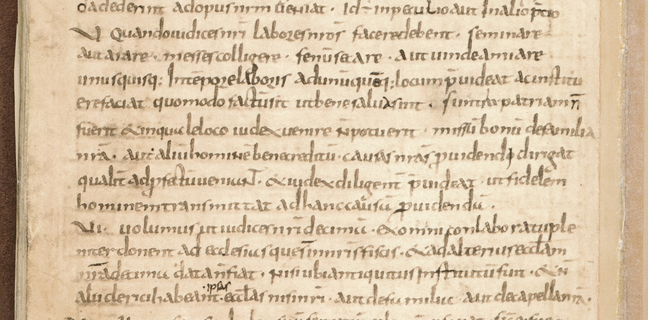 dederint ad opus nrm veniat · Id ÷ in peculio aut in alio p̄tio
V Quando iudices nri labores nros facere debent · seminare
aut arare · messes colligere · fenū secare · aut uindemiare
unusquisq; In tēpore laboris ad unūquēq; locum p̄uideat ac institu
ere faciat quomodo factū sit ut bene salua sint · si intra patriam n̄
fuerit & in quale loco iudex uenire n̄ potuerit · missū bonū de familia
nrā · aut aliū hominē bene creditū · causas nras puidendi dirigat
qualit̄ ad pfectū ueniant · & iudex diligent̄ p̄uideat · ut fidelem
hominem transmittat ad hanc causā puidendā ·
VI · uolumus ut iudices nri decimā · ex omni conlaboratu ple
niter donent ad ecclesias quę s̄ in nris fiscis · & ad alterius ecclam
nrā decima data n̄ fiat · nisi ubi antiquitus Institutū fuit · & n̄
alii clerici habeant ipsas ecclas nisi nri · aut de familia · aut de capella nra ·